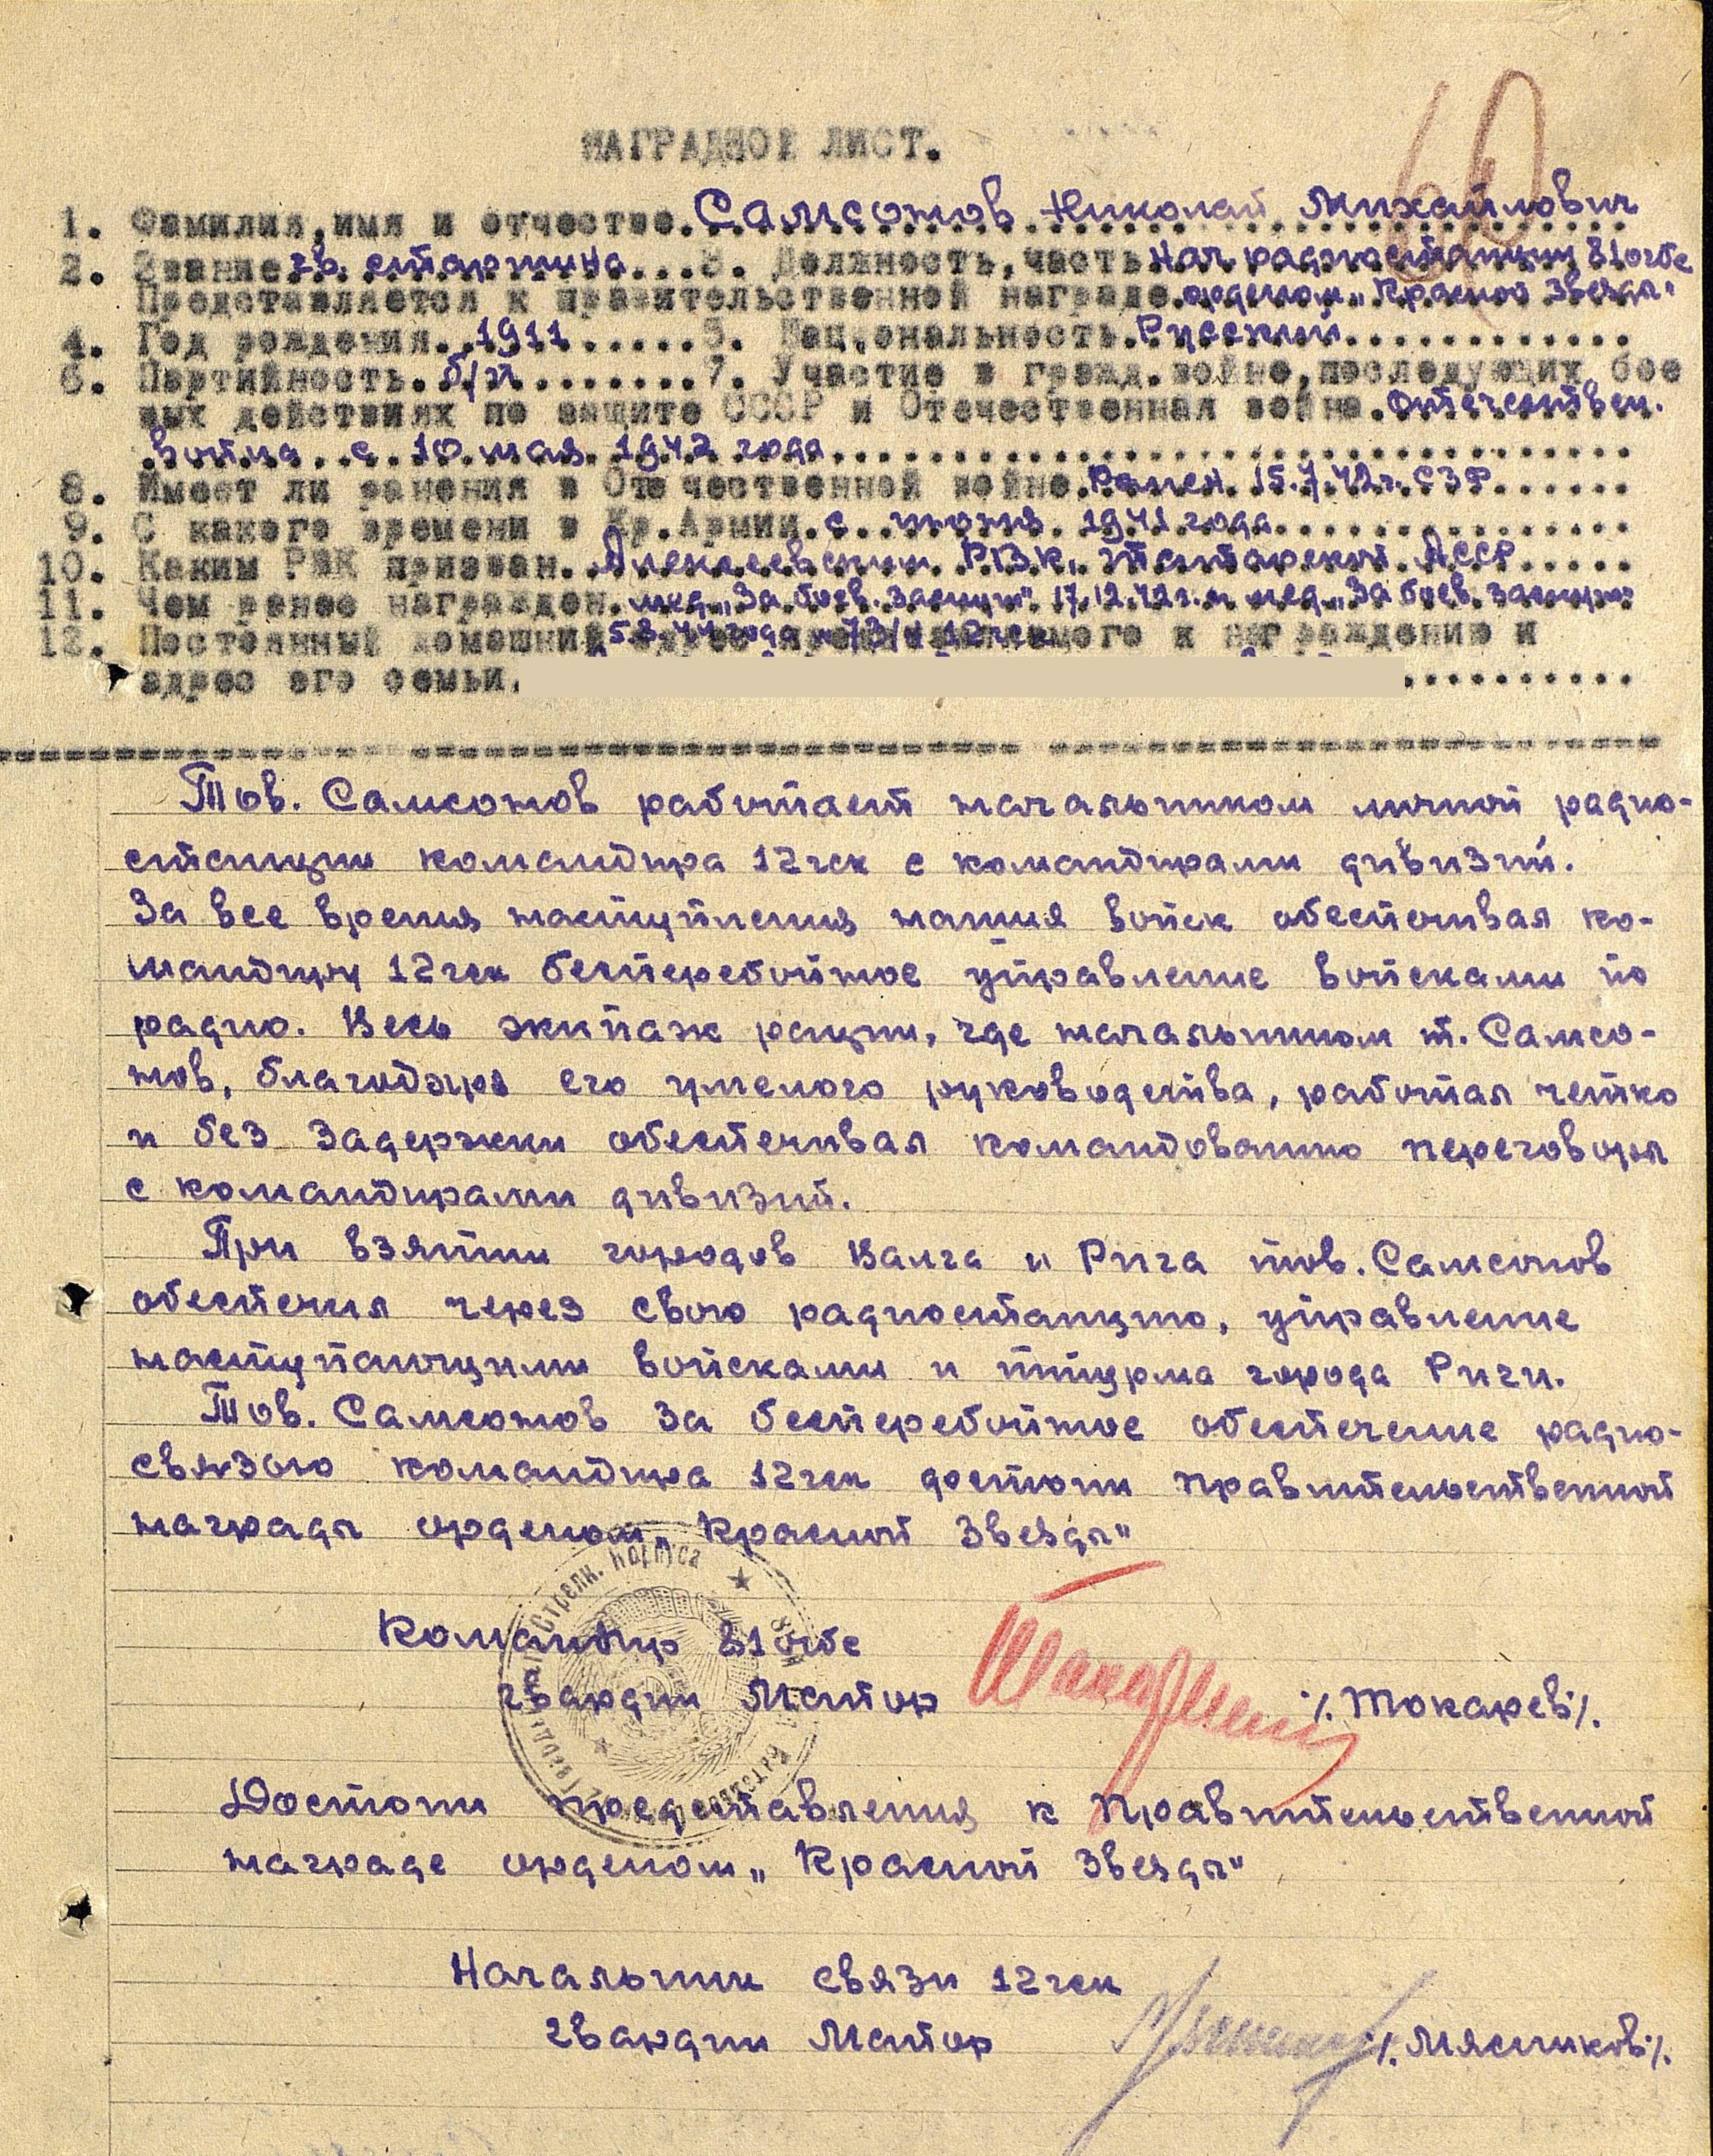 60
НАГРАДНОЙ ЛИСТ.
1. Фамилия, имя и отчество. Самсонов Николай Михайлович
2. Звание гв. старшина 3. Должность, часть нач радиостанции 81 огбс
Представляется к правительственной награде орденом „Красной Звезды"
4. Год рождения 1911 5. Национальность Русский
6. Партийность б/п 7. Участие в гражд. войне, последующих бое
вых действиях по защите СССР и Отечественная война. Отечествен.
война с 10 мая 1942 года
8. Имеет ли ранения в Отечественной войне. Ранен 15.7.42г. СЗФ
9. С какого времени в Кр. Армии. с июня 1941 года
10. Каким РВК призван. Алексеевским РВК, Татарской АССР
11. Чем ранее награжден. мед „За боев. заслуги" 17.12.42г. и мед „За боев. заслуги"
12. Постоянный домашний адрес представляемого к награждению и
адрес его семьи.
Тов. Самсонов работает начальником личной радио-
станции командира 12 гск с командирами дивизий.
За все время наступления наших войск обеспечивал ко-
мандиру 12 гск бесперебойное управление войсками по
радио. Весь экипаж рации, где начальником т. Самсо-
нов, благодаря его умелого руководства, работал четко
и без задержки обеспечивал командованию переговоры
с командирами дивизий.
При взятии городов Валга и Рига тов. Самсонов
обеспечил через свою радиостанцию, управление
наступающими войсками и штурма города Риги.
Тов. Самсонов за бесперебойное обеспечение радио-
связью командира 12 гск достоин правительственной
награды орденом „Красной Звезды"
Командир 81 огбс
гвардии Майор /.Токарев/.
Достоин представления к Правительственной
награде орденом „Красной Звезды"
Начальник связи 12 гск
гвардии Майор /.Мясников/.